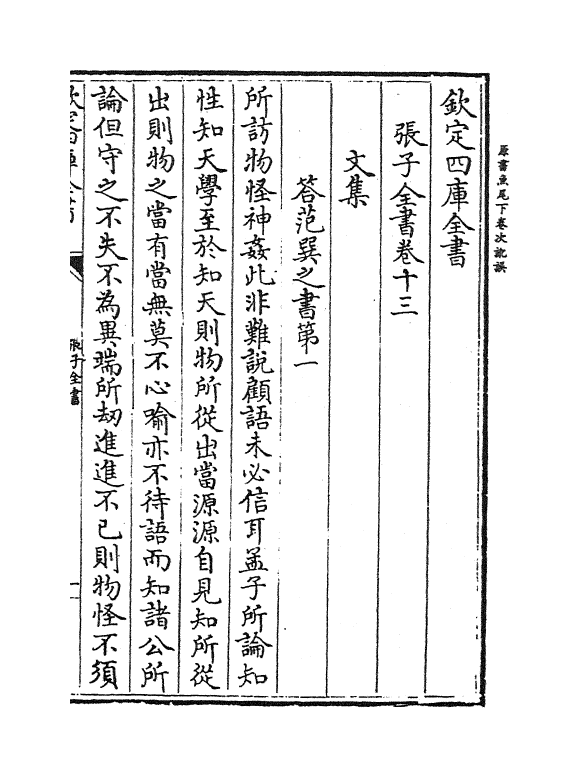 原書魚尾下卷次訛誤
欽定四庫全書
張子全書卷十三
文集
答范巽之書第一
所訪物怪神姦此非難說顧語未必信耳孟子所論知
性知天學至於知天則物所從出當源源自見知所從
出則物之當有當無莫不心喻亦不待語而知諸公所
論但守之不失不為異端所刼進進不已則物怪不須
張子全書